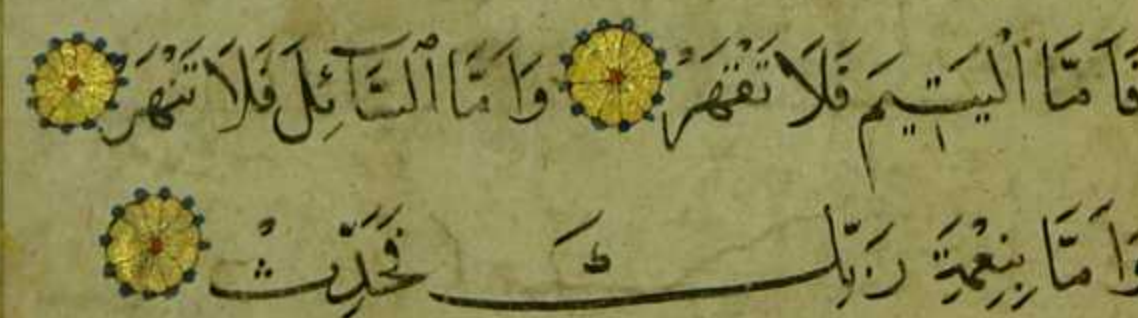 فَاَمَّا الْيَتِيمَ فَلَا تَقْهَرْ وَاَمَّا السَّآئِلَ فَلَا تَنْهَرْ
وَاَمَّا بِنِعْمَةِ رَبِّكَ فَحَدِّثْ